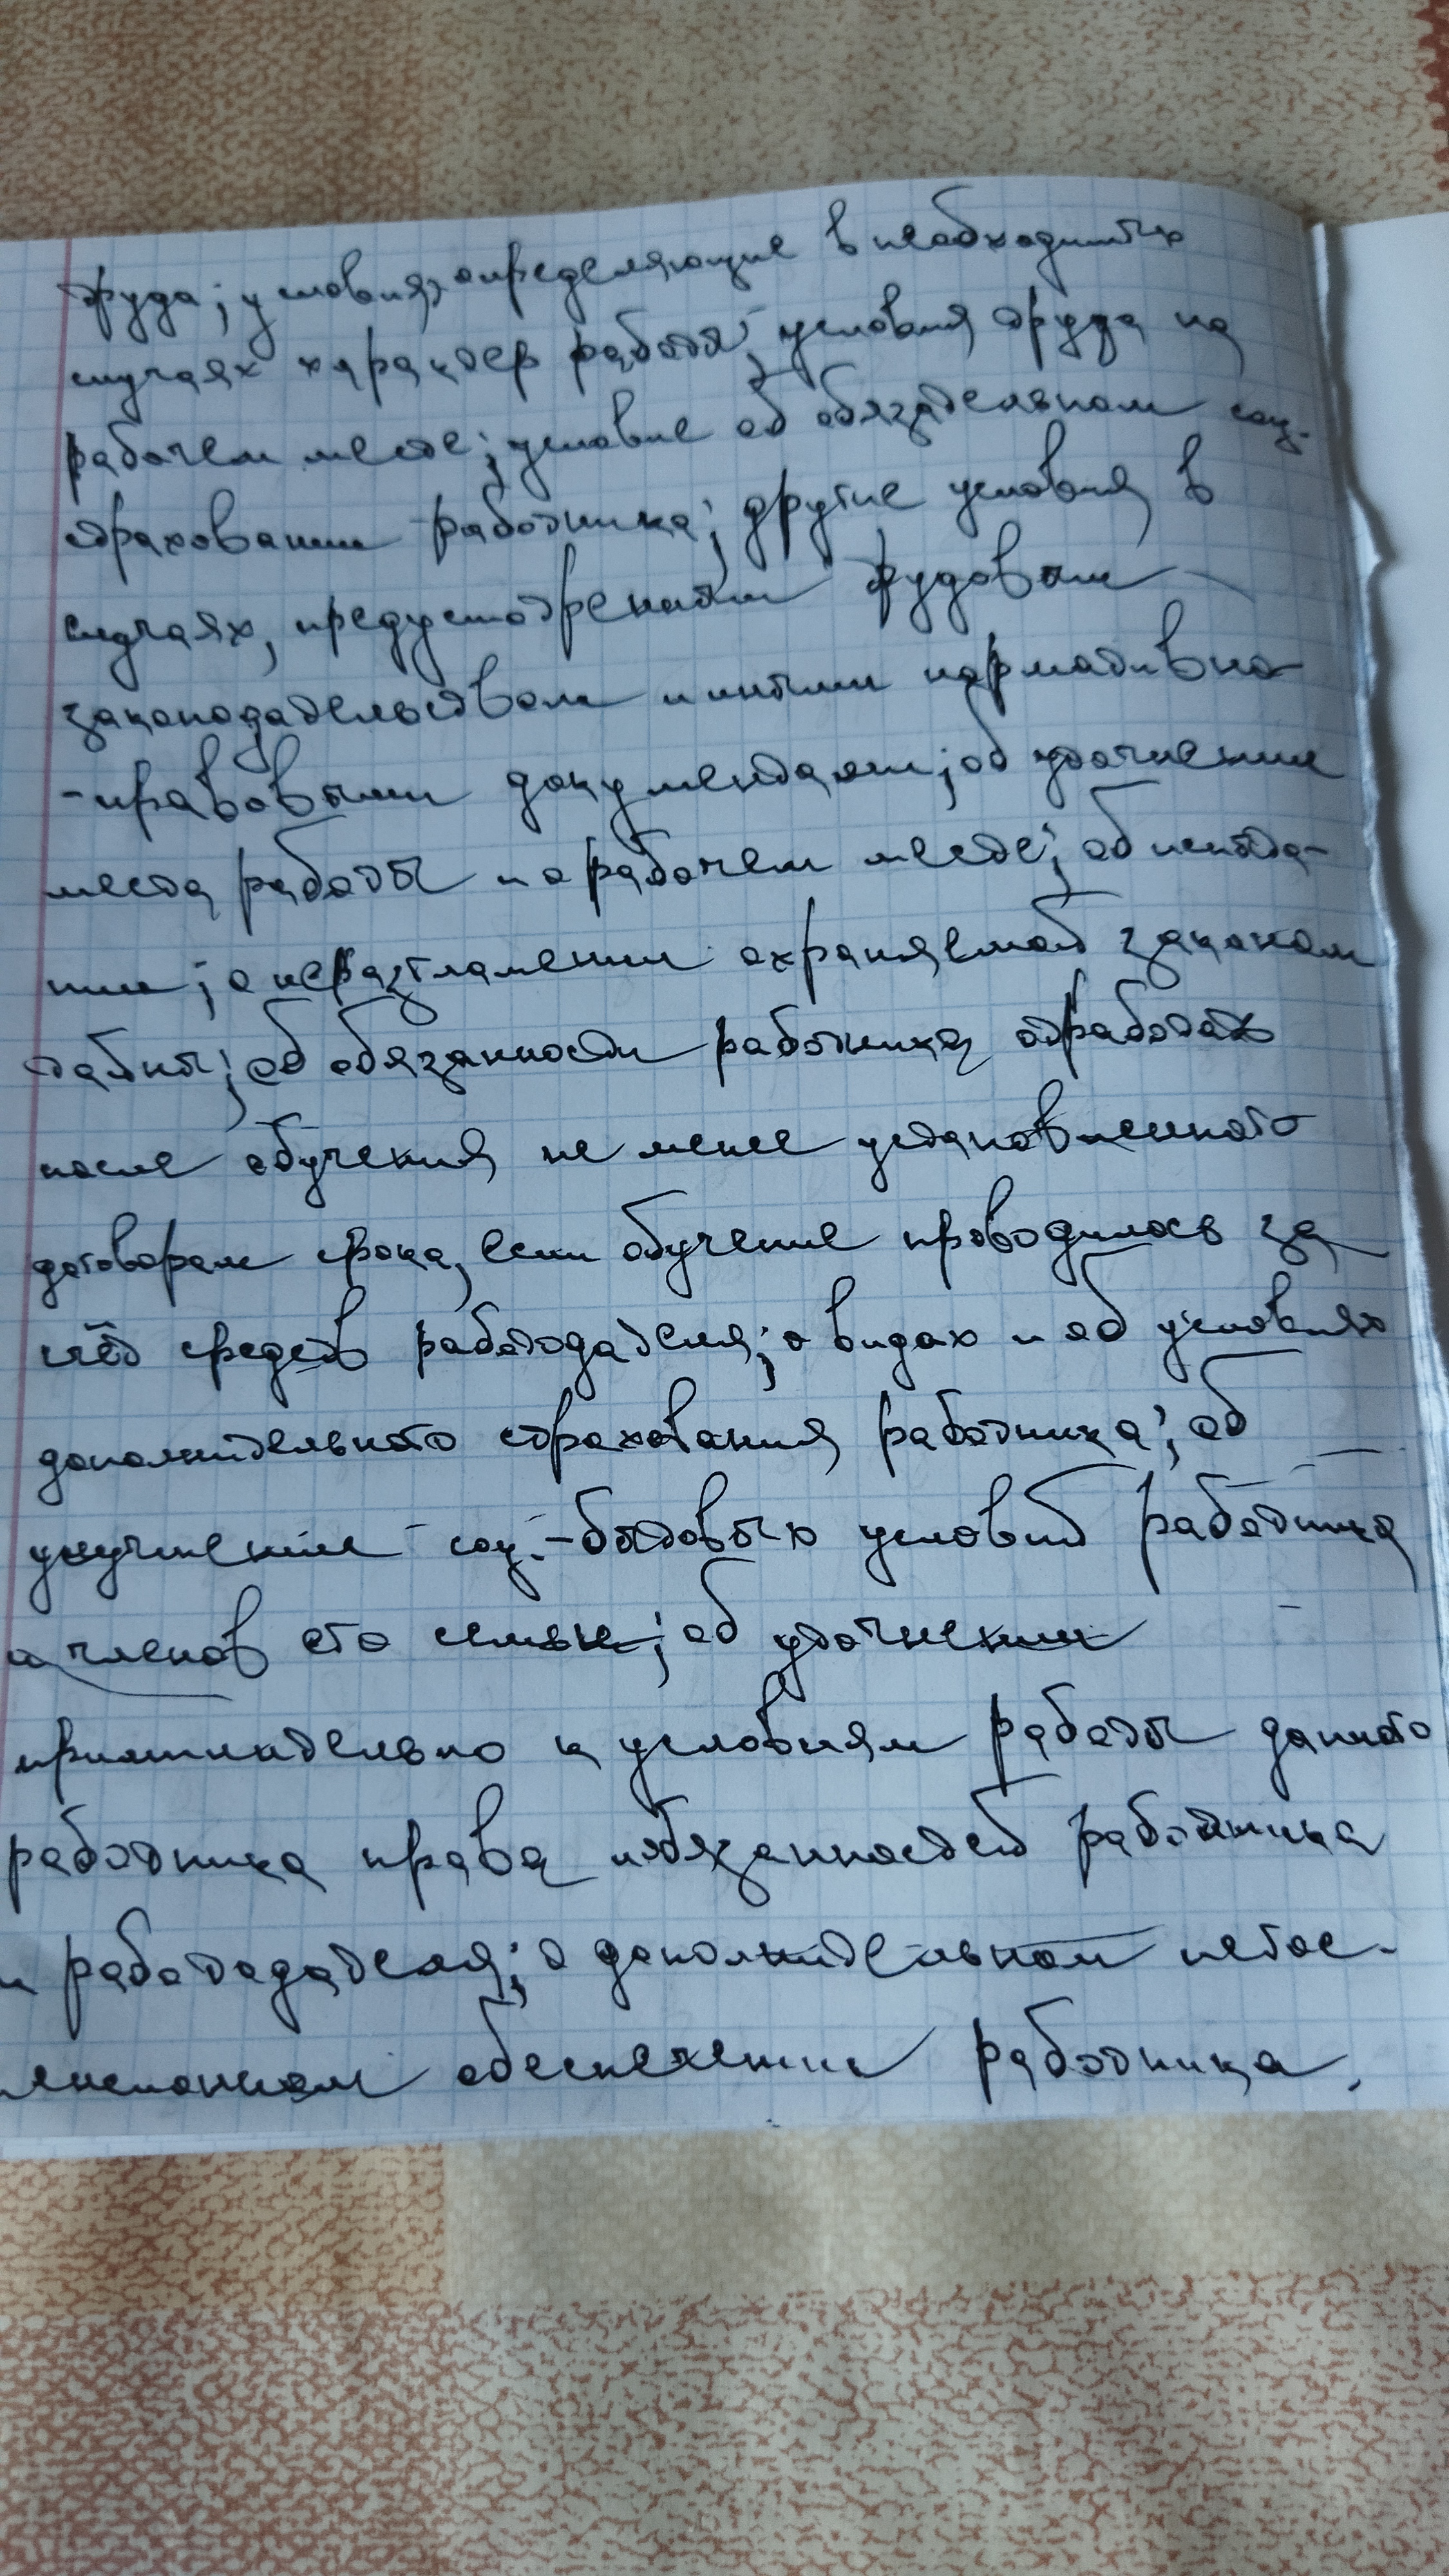 труда; условия, определяющие в необходимых
случаях характер работы; условия труда на
рабочем месте; условие об обязательном соц.
страховании работника; другие условия в
случаях, предусмотренных трудовым
законодательством и иными нормативно
-правовыми документами; об уточнении
места работы и о рабочем месте; об испыта-
нии; о неразглашении охраняемой законом
тайны; об обязанности работника отработать
после обучения не менее установленного
договором срока, если обучение проводилось за
счёт средств работодателя; о видах и об условиях
дополнительного страхования работника; об
улучшении соц.-бытовых условий работника
и членов его семьи; об уточнении
применительно к условиям работы данного
работника права и обязанностей работника
и работодателя; о дополнительном негос.
пенсионном обеспечении работника.